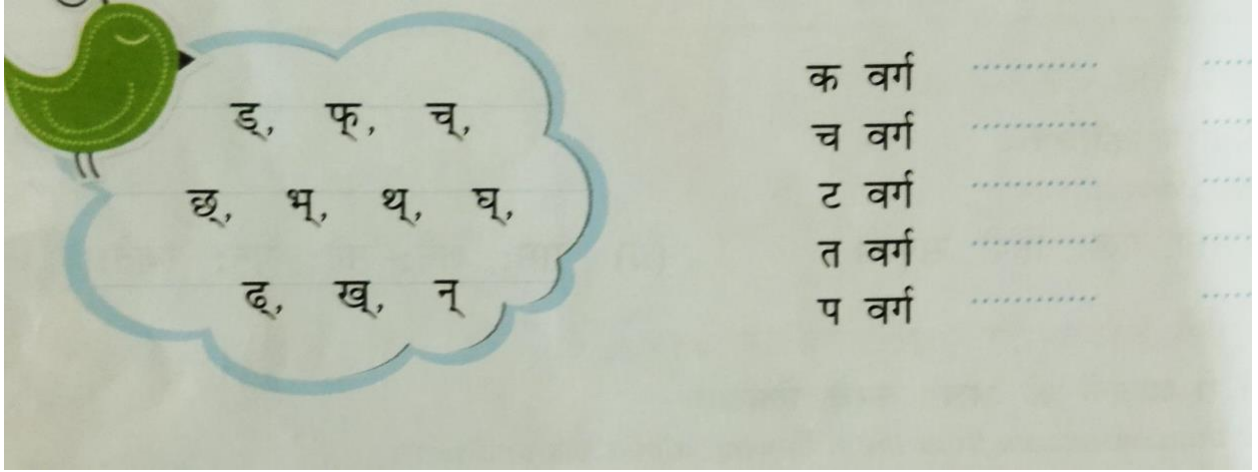 ड्, फ्, च्,
छ्, भ्, थ्, घ्,
ढ्, ख्, न्
क वर्ग ............ .....
च वर्ग ............ .....
ट वर्ग ............ .....
त वर्ग ............ .....
प वर्ग ............ .....